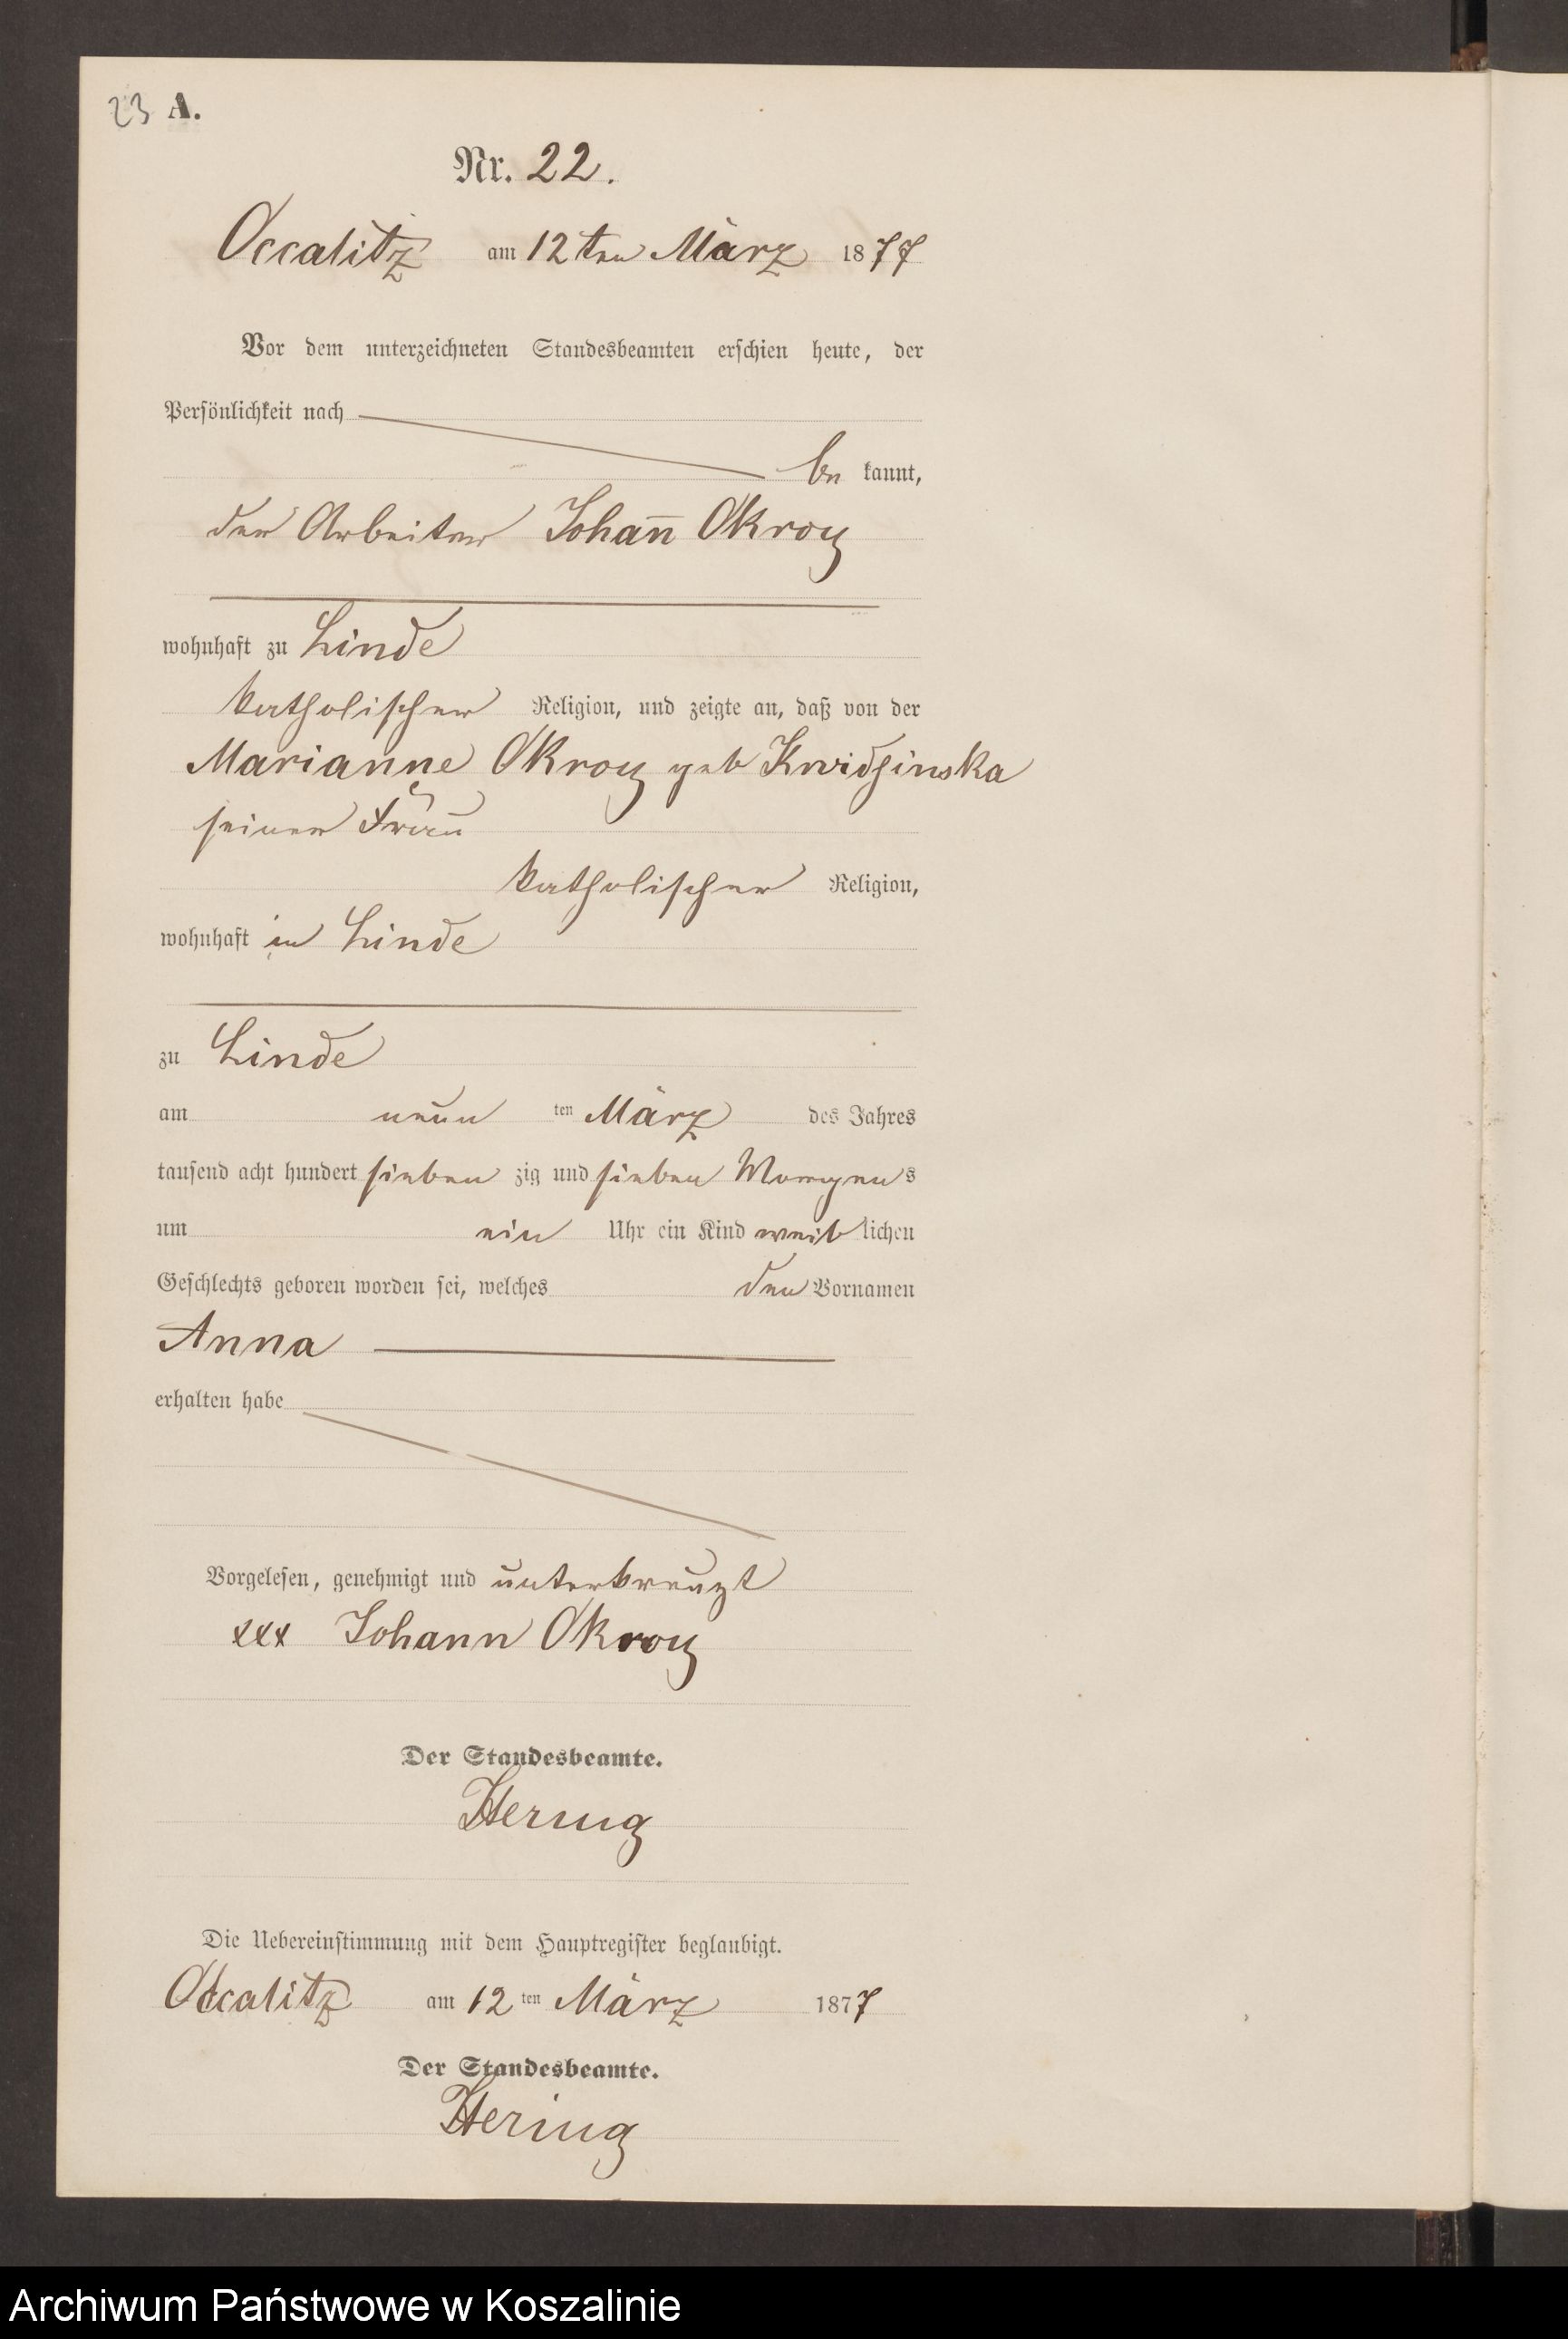 23 A.
Nr. 22.
Occalitz am 12ten März 1877
Vor dem unterzeichneten Standesbeamten erschien heute, der
Persönlichkeit nach
be kannt,
der Arbeiter Johañ Okroy
wohnhaft zu Linde
katholischer Religion, und zeigte an, daß von der
Marianne Okroy geb Kwidsinska
seiner Frau
katholischer Religion,
wohnhaft in Linde
zu Linde
am neun ten März des Jahres
tausend acht hundert sieben zig und sieben Morgens
um ein Uhr ein Kind weib lichen
Geschlechts geboren worden sei, welches den Vornamen
Anna
erhalten habe
Vorgelesen, genehmigt und unterkreuzt
xxx Johann Okroy
Der Standesbeamte.
Hering
Die Uebereinstimmung mit dem Hauptregister beglaubigt.
Occalitz am 12 ten März 1877
Der Standesbeamte.
Hering
Archiwum Państwowe w Koszalinie